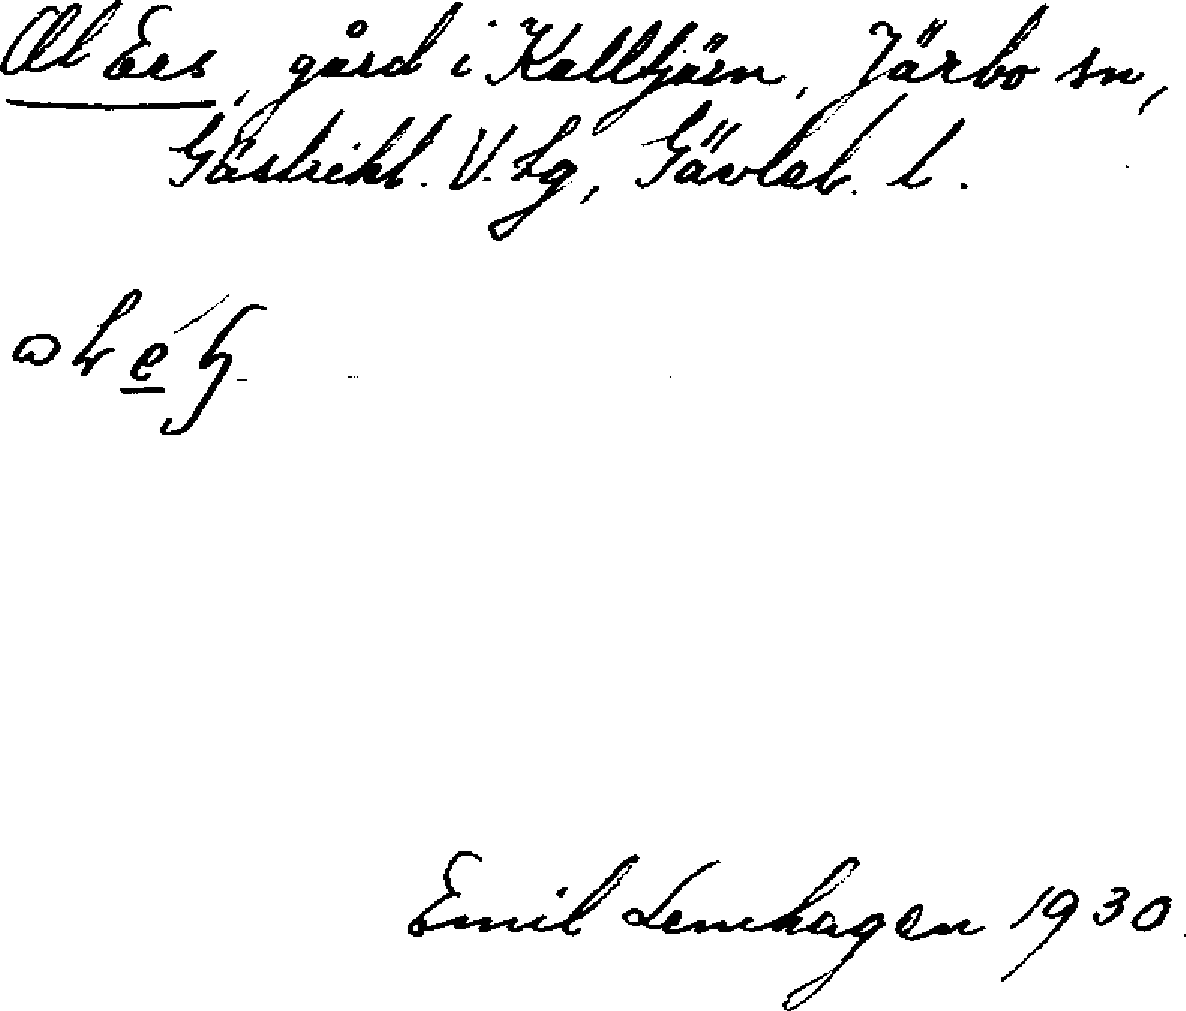 Ol Ers, gård i Kalltjärn, Järbo sn,
Gästrikl. V. tg, Gävleb. l.
Emil Lenhagen 1930